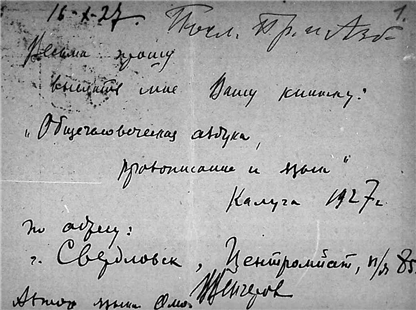 16-X-27. Посл. Пр. и Азб. 1.
Весьма прошу
выслать мне Вашу книжку:
"Общечеловеческая азбука,
правописание и язык"
Калуга 1927 г.
по адресу:
г. Свердловск, Центромпат, п/я 85
Автор языка Омо Венгеров